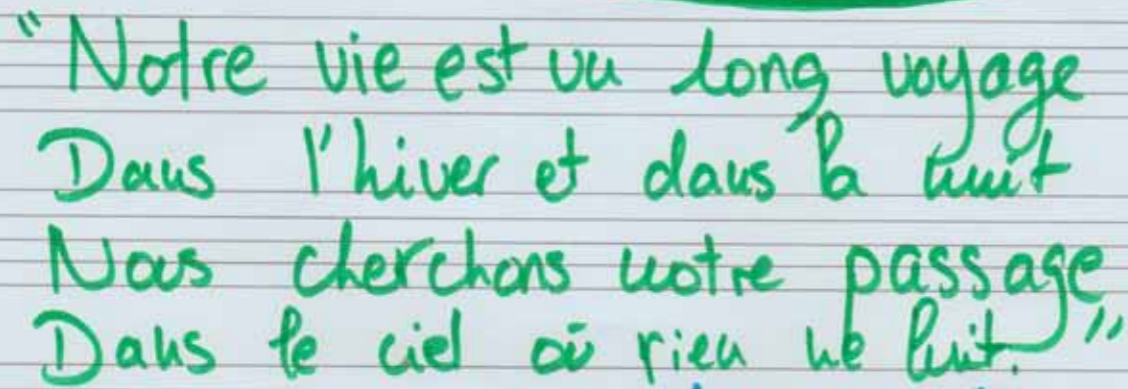 "Notre vie est un long voyage
Dans l'hiver et dans la nuit
Nous cherchons notre passage
Dans le ciel où rien ne luit."